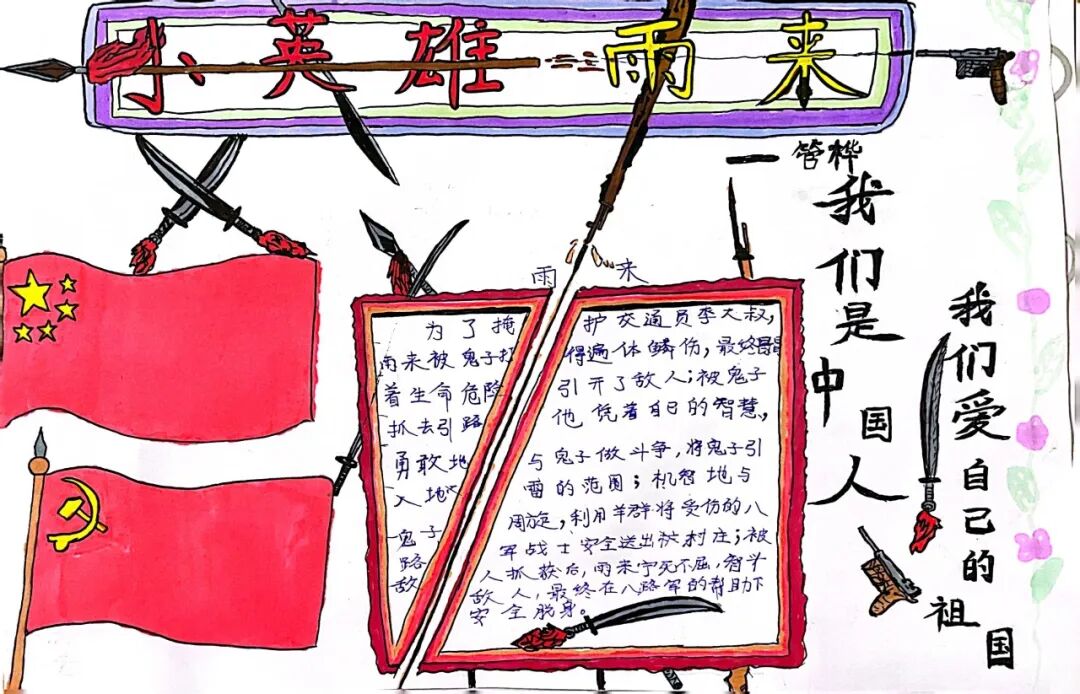 小英雄雨来
—管桦
雨来
为了掩护交通员李大叔，
雨来被鬼子打得遍体鳞伤，最终
着生命危险引开了敌人；被鬼子
抓去引路他凭着自己的智慧，
勇敢地与鬼子做斗争，将鬼子引
入地雷的范围；机智地与
鬼子周旋，利用羊群将受伤的八
路军战士安全送出村庄；被
敌人抓获后，雨来宁死不屈，智斗
敌人，最终在八路军的帮助下
安全脱身。
我们是中国人
我们爱自己的祖国